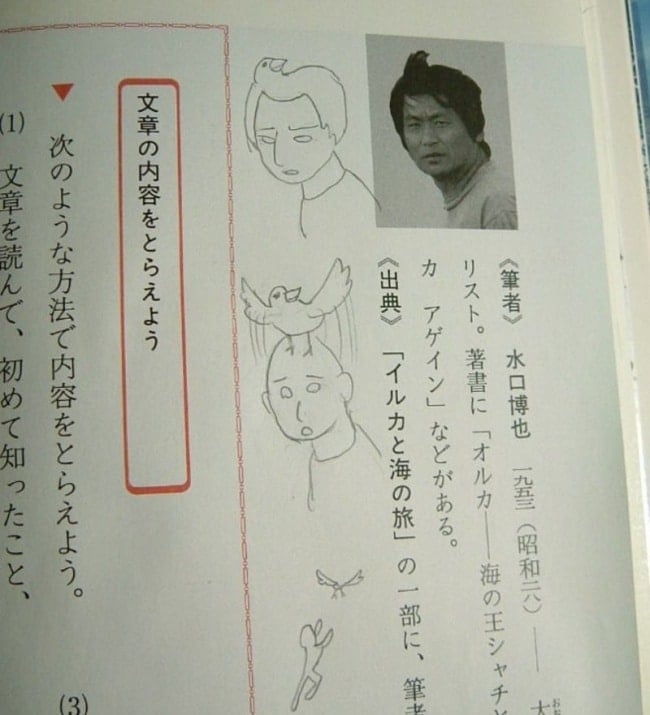 《筆者》 水口博也 一九五三(昭和二八)―― 大
リスト。著書に「オルカ――海の王シャチと
カ アゲイン」などがある。
《出典》 「イルカと海の旅」の一部に、筆者
文章の内容をとらえよう
▼ 次のような方法で内容をとらえよう。
(1) 文章を読んで、初めて知ったこと、
(3)